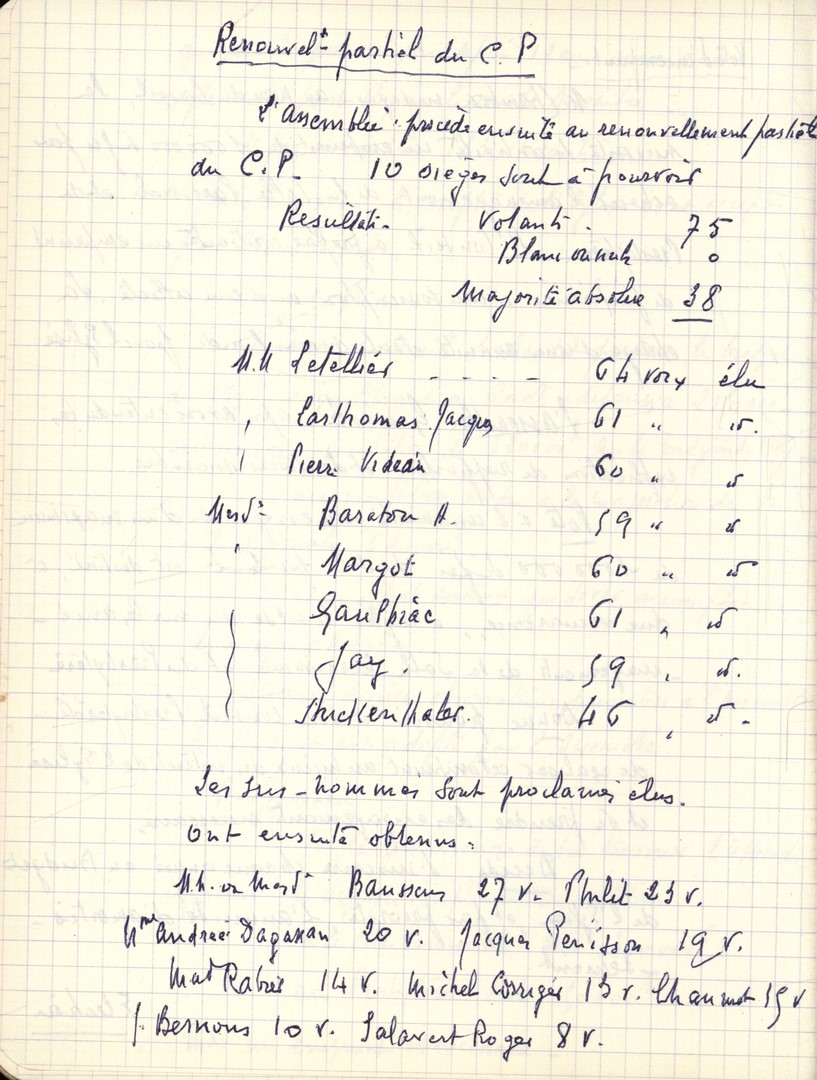 Renouvelt partiel du C.P
L'Assemblée procède ensuite au renouvellement partiel
du C.P. 10 sièges sont à pourvoir
Résultats. Votants. 75
Blanc ou nuls 0
Majorité absolue 38
M.M Letellier - - - - 64 voix élu
" Larthomas Jacques 61 " id.
" Pierre Videau 60 " id
Mesds Baraton H. 59 " id
" Margot 60 " id
Gaulhiac 61 " id
Jay. 59 " id.
Stuckenthaler. 46 " id.
Les sus-nommés sont proclamés élus.
Ont ensuite obtenus :
M.M. ou Mesds Baussens 27 v. Philit 23 v.
Mme Andrée Dagassan 20 v. Jacques Penisson 19 v.
Mad Rabier 14 v. Michel Corrigés 13 v. Chaumot v
Bernous 10 v. Salavert Roger 8 v.